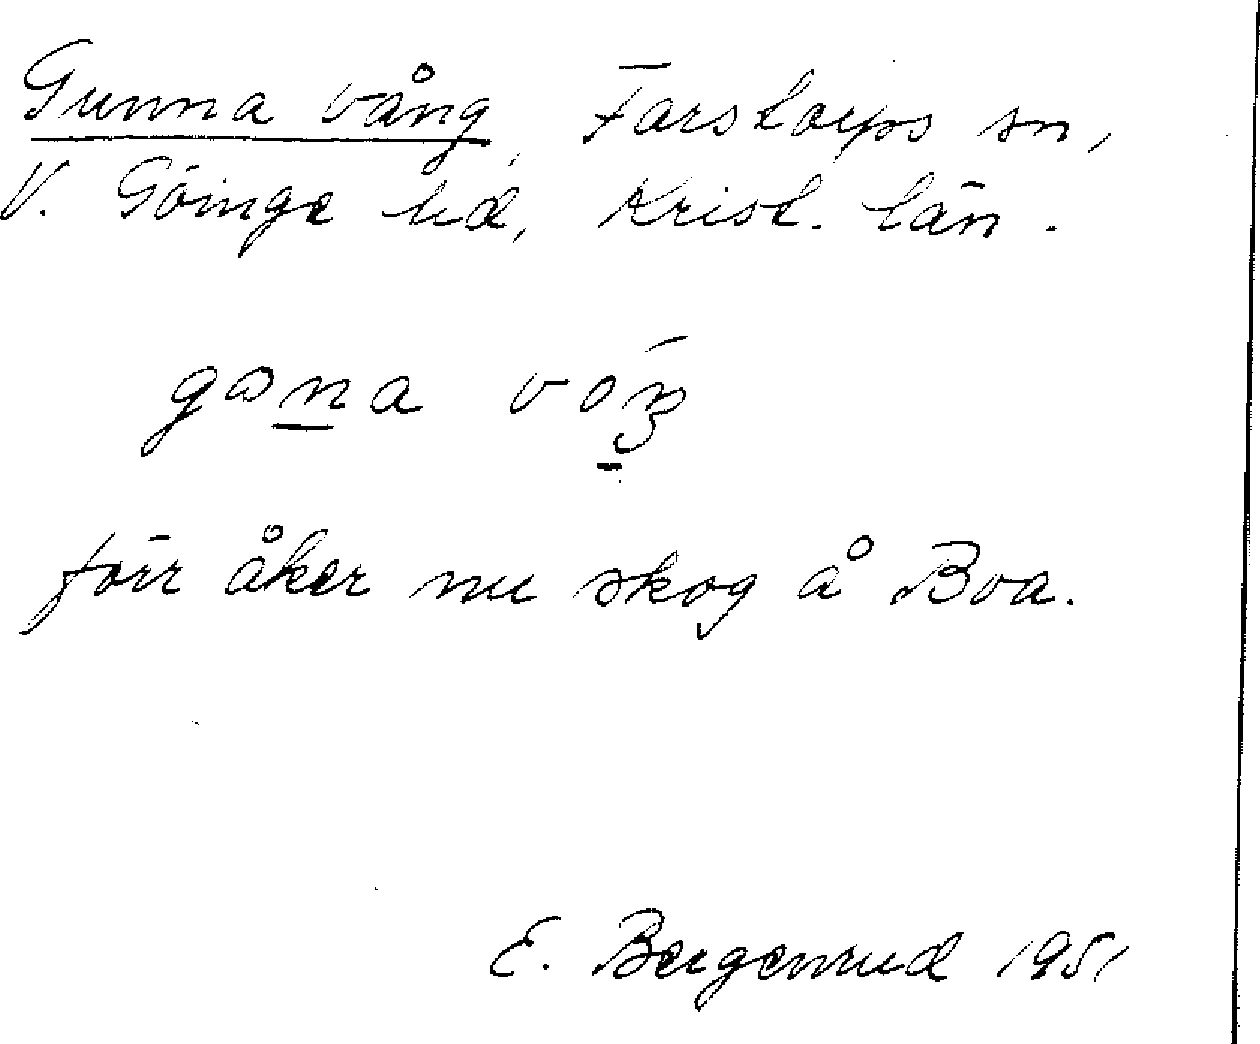 Gunna vång, Farstorps sn,
V. Göinge hd, Krist. län.
förr åker nu skog å Boa.
E. Bergenrud 1951